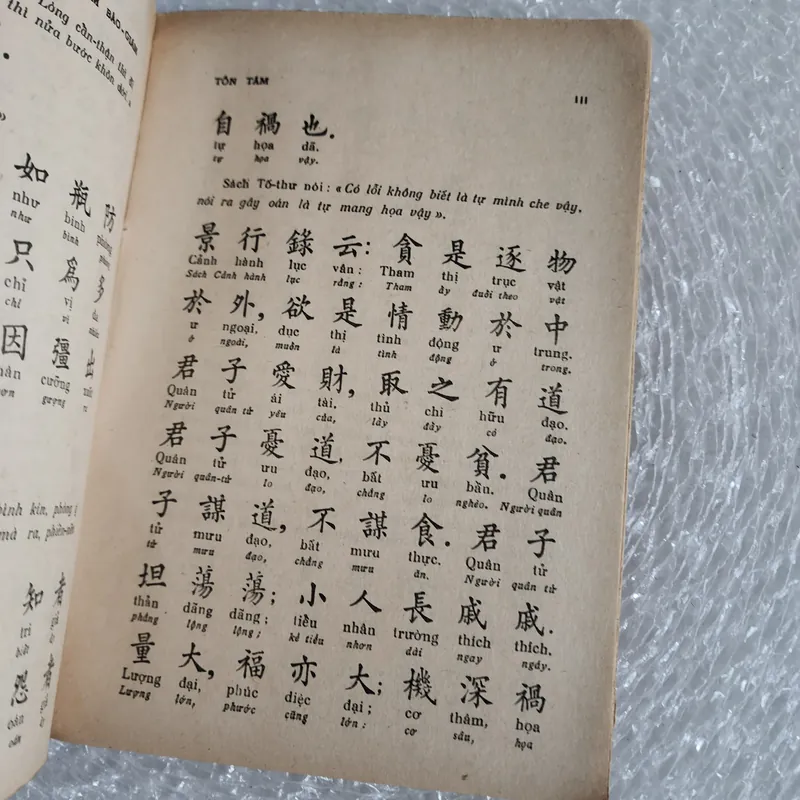 BẢO-GIÁM
Lòng cẩn-thận thì đi
thì nửa bước khôn dời.»
如 瓶 防
như bình
như bình
只 為 多
chỉ vị
chỉ vì
因 疆 出
cưỡng
gượng
bình kín, phòng
mà ra, phiền-não
知 者
tri
怨 者
oán
oán
TỒN TÂM
111
自 禍 也.
tự họa dã.
tự họa vậy.
Sách Tố-thư nói : «Có lỗi không biết là tự mình che vậy,
nói ra gây oán là tự mang họa vậy».
景 行 錄 云: 貪 是 逐 物
Cảnh hành lục vân: Tham thị trục vật
Sách Cảnh hành lục rằng: Tham ấy đuổi theo vật
於 外, 欲 是 情 動 於 中
ư ngoại, dục thị tình động ư trung.
ở ngoài, muốn là tình động ở trong.
君 子 愛 財, 取 之 有 道
Quân tử ái tài, thủ chi hữu đạo.
Người quân tử yêu của, lấy đấy có đạo.
君 子 憂 道, 不 憂 貧. 君
Quân tử ưu đạo, bất ưu bần. Quân
Người quân-tử lo đạo, chẳng lo nghèo. Người quân
子 謀 道, 不 謀 食. 君 子
tử mưu đạo, bất mưu thực. Quân tử
tử mưu đạo, chẳng mưu ăn. Người quân tử
坦 蕩 蕩; 小 人 長 戚 戚.
thản đãng đãng; tiểu nhân trường thích thích.
phẳng lộng lộng; kẻ tiểu nhơn dài ngay ngáy.
量 大, 福 亦 大; 機 深 禍
Lượng đại, phúc diệc đại; cơ thâm, họa
Lượng lớn, phước cũng lớn: cơ sâu, họa